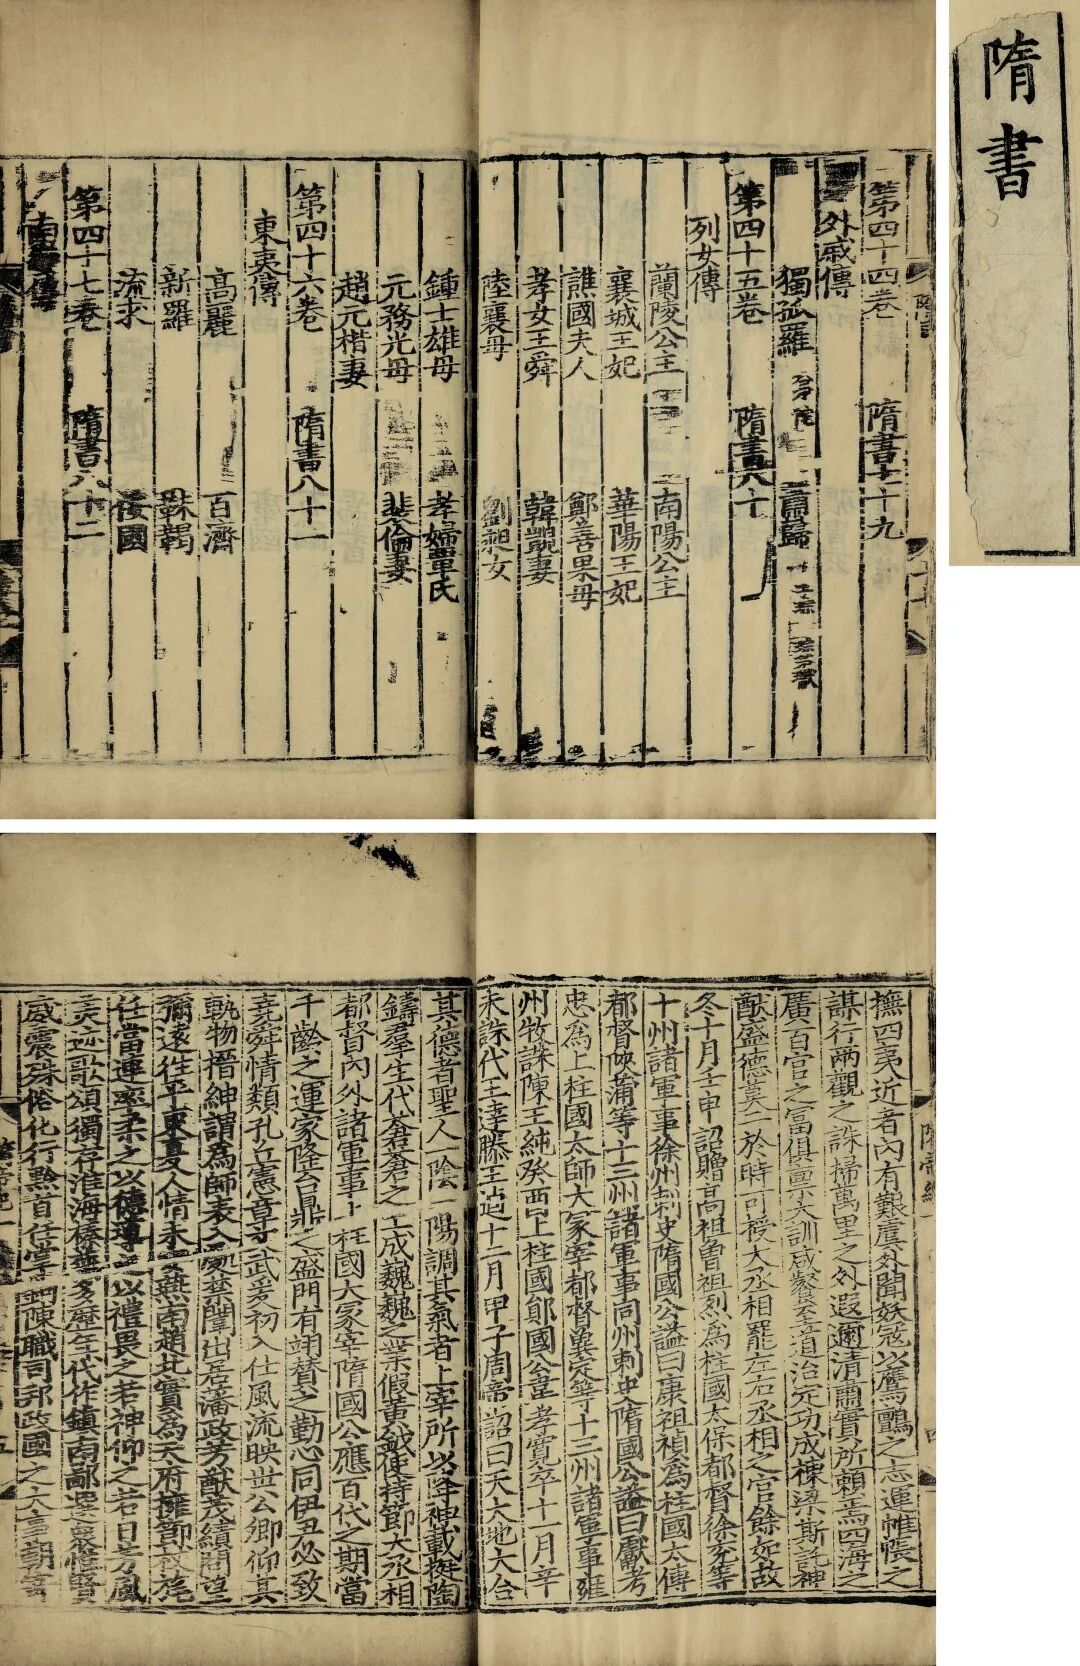 隋書
第四十四卷 隋書七十九
外戚傳
獨孤羅 蕭巋
第四十五卷 隋書八十
列女傳
蘭陵公主 南陽公主
襄城王妃 華陽王妃
譙國夫人 鄭善果母
孝女王舜 韓覬妻
陸襄母 劉昶女
鍾士雄母 孝婦覃氏
元務光母 裴倫妻
趙元楷妻
第四十六卷 隋書八十一
東夷傳
高麗 百濟
新羅 靺鞨
流求 倭國
第四十七卷 隋書八十二
南蠻傳
撫四夷近者內有艱虞外聞妖寇以鷹鸇之志運帷帳之
謀行兩觀之誅掃萬里之外遐邇清肅實所賴焉四海之
廣百官之富俱稟大訓咸餐至道治定功成棟梁斯託神
猷盛德莫二於時可授大丞相罷左右丞相之官餘如故
冬十月壬申詔贈高祖曾祖烈為柱國太保都督徐兗等
十州諸軍事徐州刺史隋國公諡曰康祖禎為柱國太傅
都督陝蒲等十三州諸軍事同州刺史隋國公諡曰獻考
忠為上柱國太師大冢宰都督冀定等十三州諸軍事雍
州牧誅陳王純癸酉上柱國鄖國公韋孝寬卒十一月辛
未誅代王達滕王逌十二月甲子周帝詔曰天大地大合
其德者聖人一陰一陽調其氣者上宰所以降神載挺陶
鑄羣生代蒼蒼之工成巍巍之業假黃鉞使持節大丞相
都督內外諸軍事上柱國大冢宰隋國公應百代之期當
千齡之運家隆台鼎之盛門有翊贊之勤心同伊尹必致
堯舜情類孔丘憲章文武爰初入仕風流映世公卿仰其
軌物搢紳謂為師表入處禁闈出居藩政芳猷茂績聞望
彌遠往平東夏人情未安燕南趙北實為天府擁節杖旄
任當連率柔之以德導之以禮畏之若神仰之若日芳風
美迹歌頌獨存淮海榛蕪多歷年代作鎮南鄙選眾惟賢
威震殊俗化行黔首任掌鉤陳職司邦政國之大事朝寄